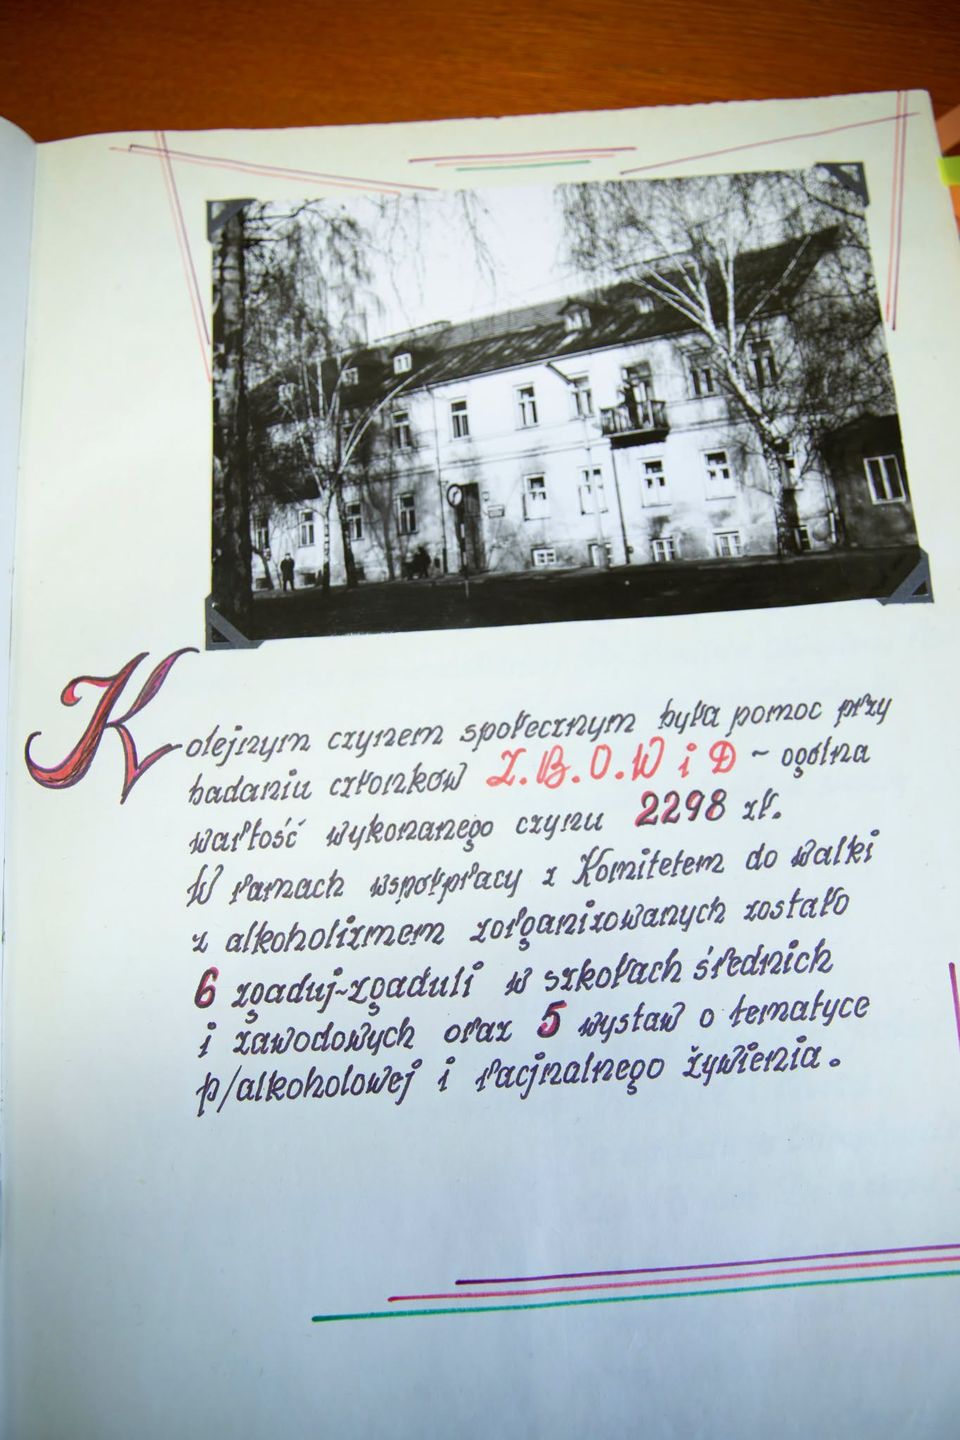 Kolejnym czynem społecznym była pomoc przy
badaniu członków Z.B.O.W i D ~ ogólna
wartość wykonanego czynu 2298 zł.
W ramach współpracy z Komitetem do walki
z alkoholizmem zorganizowanych zostało
6 zgaduj~zgaduli w szkołach średnich
i zawodowych oraz 5 wystaw o tematyce
p/alkoholowej i racjnalnego żywienia.